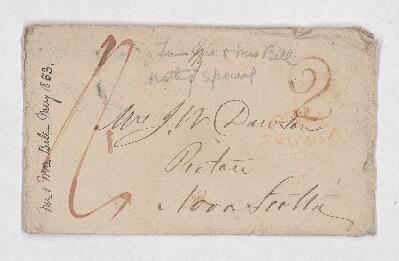 Mr & Mrs Bell May 1853.
To Mr & Mrs Bell
nothing special
2
Mrs J W Dawson
Pictou
Nova Scotia